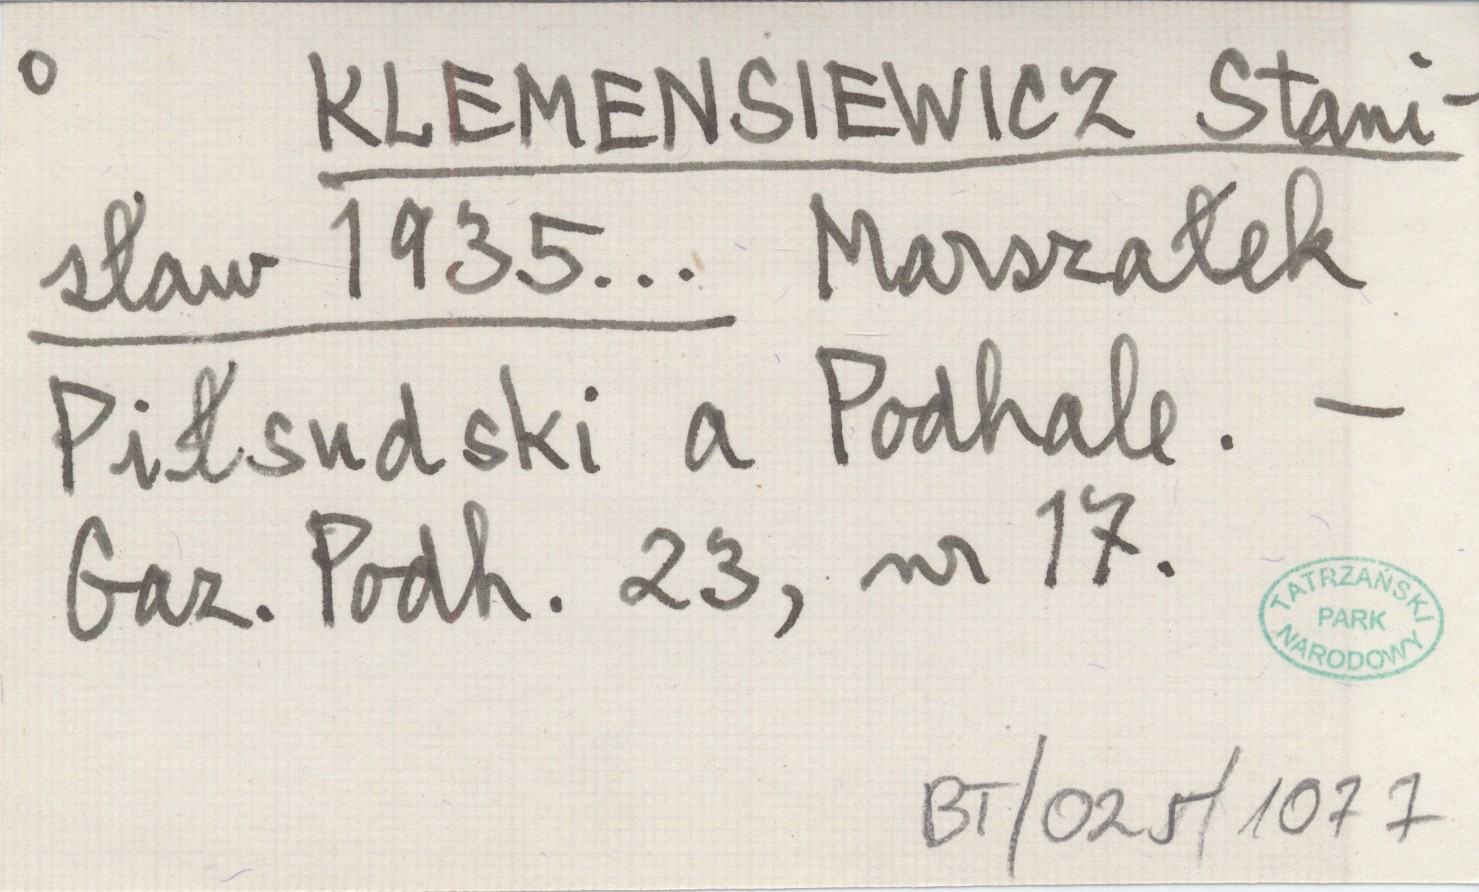 o KLEMENSIEWICZ Stani-
sław 1935... Marszałek
Piłsudski a Podhale. –
Gaz. Podh. 23, nr 17.
TATRZAŃSKI
PARK
NARODOWY
BT/025/1077